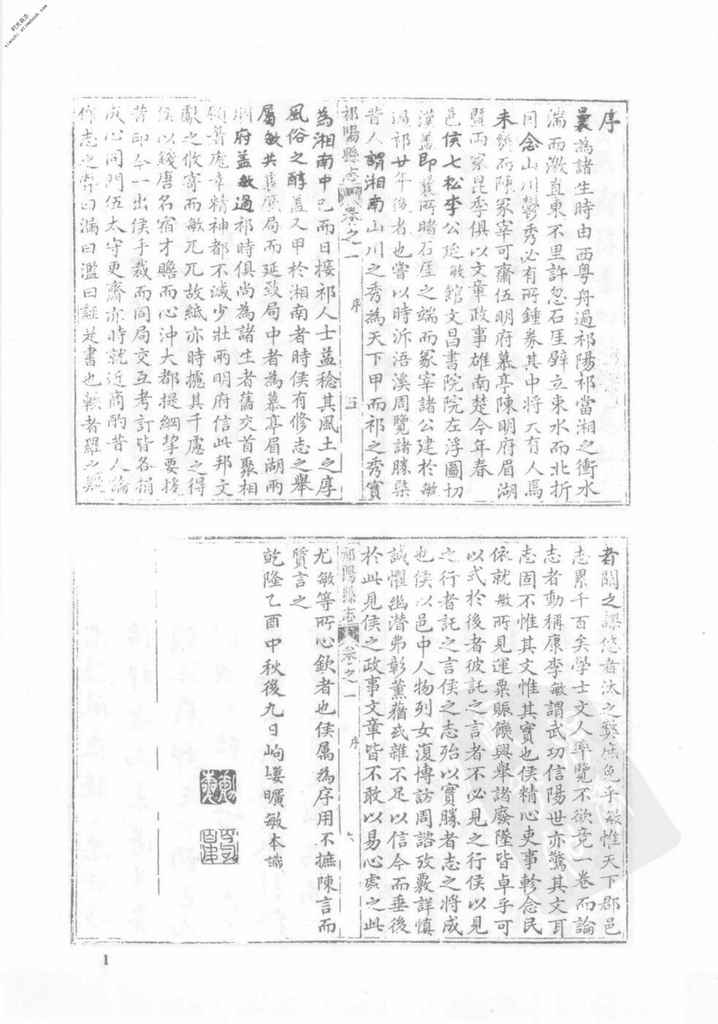 序
曩為諸生時由西粵舟過祁陽祁當湘之衝水
湍而激直東不里許忽石崖壁立束水而北折
因念山川鬱秀必有所鍾毓其中將大有人焉
未幾而陳冢宰可齋伍明府慕亭陳明府眉湖
暨兩家昆季俱以文章政事雄南楚今年春
邑侯七松李公延敏館文昌書院院左浮圖切
漢蓋即曩所睹石崖之端而冢宰諸公建於敏
過祁廿年後者也嘗以時泝浯溪周覽諸勝槩
昔人謂湘南山川之秀為天下甲而祁之秀實
祁陽縣志 卷之一 序 五
為湘南中已而日接祁人士益稔其風土之厚
風俗之醇益又甲於湘南者時侯有修志之舉
屬敏共襄厥局而延致局中者為慕亭眉湖兩
明府蓋敏過祁時俱尚為諸生者舊交首聚相
顧蒼龐幸精神都不減少壯兩明府信此邦文
獻之攸寄而敏兀兀故紙亦時攄其千慮之得
侯以錢唐名宿才贍而心沖大都提綱挈要援
昔印今一出侯手裁而同局交互考訂皆各捐
成心同門伍太守更齋亦時就近商酌昔人論
修志之弊曰漏曰濫曰誣是書也
者闕之謬悠者汰之弊庶免乎敏惟天下郡邑
志累千百矣學士文人率覽不欲竟一卷而論
志者動稱康李敏謂武功信陽世亦驚其文耳
志固不惟其文惟其實也侯精心吏事軫念民
依就敏所見運粟賑饑興舉諸廢墜皆卓乎可
以式於後者彼託之言者不必見之行侯以見
之行者託之言侯之志殆以實勝者志之將成
也侯以邑中人物列女復博訪周諮攷覈詳慎
誠懼幽潛弗彰薰蕕或雜不足以信今而垂後
於此見侯之政事文章皆不敢以易心處之此
祁陽縣志 卷之一 序 六
尤敏等所心欽者也侯屬為序用不摭陳言而
質言之
乾隆乙酉中秋後九日岣嶁曠敏本識
1